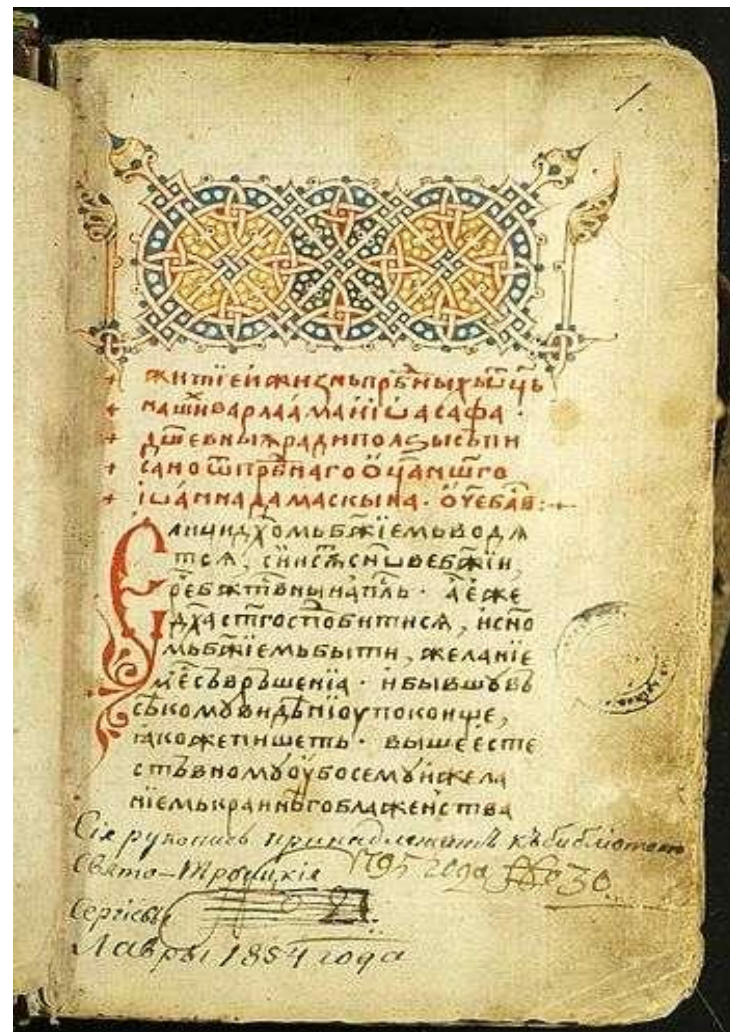 житїе и жизнь прп҇бныхъ ѿц҃ь
наши҇ варлаама и іѡасафа ·
дш҃евныѧ ради ползы съпи
сано ѿ прп҇бнаго ѻц҃а нш҃го
іѡанна дамаскына · ѻч҃е бл҃в :·
Елици дх҃омь бж҃їемь водѧ
тсѧ, сїи сѫ҇ сн҃ове бж҃їи,
рече бж҃твныи ап҇лъ · а еже
дх҃а ст҃го сподобитисѧ, и сн҃о
мь бж҃їемь быти, желанїе
мь е҇ съвръшенїа · и бывшу въ
сѣкому видѣнїоу покоище,
ꙗкоже пишеть · выше есте
ствъвному оубо сему и жела
нїемь краинѣго блаженства
Сія рукопись принадлежитъ къ библіотекѣ
Свято-Троицкія
1795 года № 30
Сергіевы 21
Лавры 1854 года
1